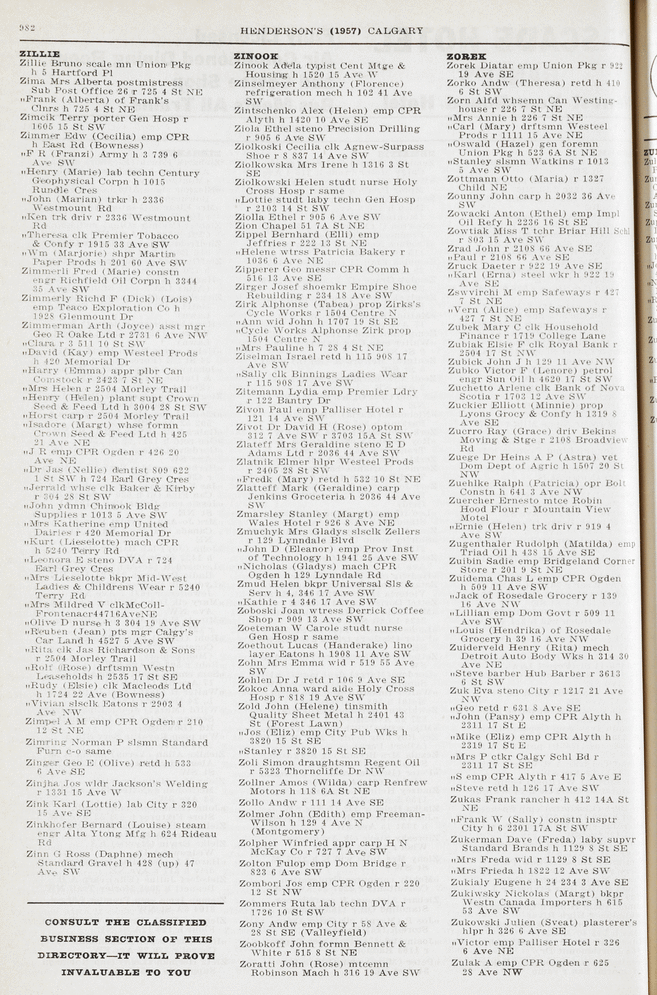 982
HENDERSON'S (1957) CALGARY
ZILLIE
Zillie Bruno scale mn Union Pkg
h 5 Hartford Pl
Zima Mrs Alberta postmistress
Sub Post Office 26 r 725 4 St NE
"Frank (Alberta) of Frank's
Clnrs h 725 4 St NE
Zimcik Terry porter Gen Hosp r
1605 15 St SW
Zimmer Edw (Cecilia) emp CPR
h East Rd (Bowness)
"F R (Franzi) Army h 3 739 6
Ave SW
"Henry (Marie) lab techn Century
Geophysical Corpn h 1015
Rundle Cres
"John (Marian) trkr h 2336
Westmount Rd
"Ken trk driv r 2336 Westmount
Rd
"Theresa clk Premier Tobacco
& Confy r 1915 33 Ave SW
"Wm (Marjorie) shpr Martin
Paper Prods h 201 60 Ave SW
Zimmerli Fred (Marie) constn
engr Richfield Oil Corpn h 3344
35 Ave SW
Zimmerly Richd F (Dick) (Lois)
emp Teaco Exploration Co h
1928 Glenmount Dr
Zimmerman Arth (Joyce) asst mgr
Geo R Oake Ltd r 2731 6 Ave NW
"Clara r 3 511 10 St SW
"David (Kay) emp Westeel Prods
h 420 Memorial Dr
"Harry (Emma) appr plbr Can
Comstock r 2423 7 St NE
"Mrs Helen r 2504 Morley Trail
"Henry (Helen) plant supt Crown
Seed & Feed Ltd h 3004 28 St SW
"Horst carp r 2504 Morley Trail
"Isadore (Margt) whse formn
Crown Seed & Feed Ltd h 425
21 Ave NE
"J R emp CPR Ogden r 426 20
Ave NE
"Dr Jas (Nellie) dentist 809 622
1 St SW h 724 Earl Grey Cres
"Jerrald whse clk Baker & Kirby
r 304 28 St SW
"John ydmn Chinook Bldg
Supplies r 1013 5 Ave SW
"Mrs Katherine emp United
Dairies r 420 Memorial Dr
"Kurt (Lieselotte) mach CPR
h 5240 Terry Rd
"Leonora E steno DVA r 724
Earl Grey Cres
"Mrs Lieselotte bkpr Mid-West
Ladies & Childrens Wear r 5240
Terry Rd
"Mrs Mildred V clkMcColl-
Frontenacr44716AveNE
"Olive D nurse h 3 304 19 Ave SW
"Reuben (Jean) pts mgr Calgy's
Car Land h 4527 5 Ave SW
"Rita clk Jas Richardson & Sons
r 2504 Morley Trail
"Rolf (Rose) drftsmn Westn
Leaseholds h 2535 17 St SW
"Rudy (Elsie) clk Macleods Ltd
h 1724 22 Ave (Bowness)
"Vivian slsclk Eatons r 2903 4
Ave NW
Zimpel A M emp CPR Ogden r 210
12 St NE
Zimring Norman P slsmn Standard
Furn c-o same
Zinger Geo E (Olive) retd h 533
6 Ave SE
Zinjha Jos wldr Jackson's Welding
r 1331 15 Ave W
Zink Karl (Lottie) lab City r 320
15 Ave SE
Zinkhofer Bernard (Louise) steam
engr Alta Ytong Mfg h 624 Rideau
Rd
Zinn G Ross (Daphne) mech
Standard Gravel h 428 (up) 47
Ave SW
CONSULT THE CLASSIFIED
BUSINESS SECTION OF THIS
DIRECTORY—IT WILL PROVE
INVALUABLE TO YOU
ZINOOK
Zinook Adela typist Cent Mtge &
Housing h 1520 15 Ave W
Zinselmeyer Anthony (Florence)
refrigeration mech h 102 41 Ave
SW
Zintschenko Alex (Helen) emp CPR
Alyth h 1420 10 Ave SE
Ziola Ethel steno Precision Drilling
r 905 6 Ave SW
Ziolkoski Cecilia clk Agnew-Surpass
Shoe r 8 837 14 Ave SW
Ziolkowska Mrs Irene h 1316 3 St
SE
Ziolkowski Helen studt nurse Holy
Cross Hosp r same
"Lottie studt laby techn Gen Hosp
r 2103 14 St SW
Ziolla Ethel r 905 6 Ave SW
Zion Chapel 51 7A St NE
Zippel Bernhard (Elli) emp
Jeffries r 222 13 St NE
"Helene wtrss Patricia Bakery r
1036 6 Ave NE
Zipperer Geo messr CPR Comm h
516 13 Ave SE
Zirger Josef shoemkr Empire Shoe
Rebuilding r 234 18 Ave SW
Zirk Alphonse (Tabea) prop Zirks's
Cycle Works r 1504 Centre N
"Ann wid John h 1707 19 St SE
"Cycle Works Alphonse Zirk prop
1504 Centre N
"Mrs Pauline h 7 28 4 St NE
Ziselman Israel retd h 115 908 17
Ave SW
"Sally clk Binnings Ladies Wear
r 115 908 17 Ave SW
Zitemann Lydia emp Premier Ldry
r 122 Bantry Dr
Zivon Paul emp Palliser Hotel r
121 14 Ave SW
Zivot Dr David H (Rose) optom
312 7 Ave SW r 3703 15A St SW
Zlateff Mrs Geraldine steno E D
Adams Ltd r 2036 44 Ave SW
Zlatnik Elmer hlpr Westeel Prods
r 2405 28 St SW
"Fredk (Mary) retd h 532 10 St NE
Zlatteff Mark (Geraldine) carp
Jenkins Groceteria h 2036 44 Ave
SW
Zmarsley Stanley (Margt) emp
Wales Hotel r 926 8 Ave NE
Zmuchyk Mrs Gladys slsclk Zellers
r 129 Lynndale Blvd
"John D (Eleanor) emp Prov Inst
of Technology h 1941 25 Ave SW
"Nicholas (Gladys) mach CPR
Ogden h 129 Lynndale Rd
Zmud Helen bkpr Universal Sls &
Serv h 4, 346 17 Ave SW
"Kathie r 4 346 17 Ave SW
Zoboski Joan wtress Derrick Coffee
Shop r 909 13 Ave SW
Zoeteman W Carole studt nurse
Gen Hosp r same
Zoethout Lucas (Handerake) lino
layer Eatons h 1908 11 Ave SW
Zohn Mrs Emma wid r 519 55 Ave
SW
Zohlen Dr J retd r 106 9 Ave SE
Zokoc Anna ward aide Holy Cross
Hosp r 818 19 Ave SW
Zold John (Helene) tinsmith
Quality Sheet Metal h 2401 43
St (Forest Lawn)
"Jos (Eliz) emp City Pub Wks h
3820 15 St SE
"Stanley r 3820 15 St SE
Zoli Simon draughtsmn Regent Oil
r 5323 Thorncliffe Dr NW
Zollner Amos (Wilda) carp Renfrew
Motors h 118 6A St NE
Zollo Andw r 111 14 Ave SE
Zolmer John (Edith) emp Freeman-
Wilson h 129 4 Ave N
(Montgomery)
Zolpher Winfried appr carp H N
McKay Co r 727 7 Ave SW
Zolton Fulop emp Dom Bridge r
823 6 Ave SW
Zombori Jos emp CPR Ogden r 220
12 St NW
Zommers Ruta lab techn DVA r
1726 10 St SW
Zony Andw emp City r 58 Ave &
28 St SE (Valleyfield)
Zoobkoff John formn Bennett &
White r 515 8 St NE
Zoratti John (Rose) mtcemn
Robinson Mach h 316 19 Ave SW
ZOREK
Zorek Diatar emp Union Pkg r 922
19 Ave SE
Zorko Andw (Theresa) retd h 410
6 St SW
Zorn Alfd whsemn Can Westing-
house r 226 7 St NE
"Mrs Annie h 226 7 St NE
"Carl (Mary) drftsmn Westeel
Prods r 1111 15 Ave NE
"Oswald (Hazel) gen foremn
Union Pkg h 523 6A St NE
"Stanley slsmn Watkins r 1013
5 Ave SW
Zottmann Otto (Maria) r 1327
Child NE
Zounny John carp h 2032 36 Ave
SW
Zowacki Anton (Ethel) emp Impl
Oil Refy h 2236 16 St SE
Zowtiak Miss T tchr Briar Hill Schl
r 803 15 Ave SW
Zrad John r 2108 66 Ave SE
"Paul r 2108 66 Ave SE
Zruck Daeter r 922 19 Ave SE
"Karl (Erna) steel wkr h 922 19
Ave SE
Zswvirchi M emp Safeways r 427
7 St NE
"Vern (Alice) emp Safeways r
427 7 St NE
Zubek Mary C clk Household
Finance r 1719 College Lane
Zubiak Elsie F clk Royal Bank r
2504 17 St NW
Zubick John J h 129 11 Ave NW
Zubko Victor F (Lenore) petrol
engr Sun Oil h 4620 17 St SW
Zuchetto Arlene clk Bank of Nova
Scotia r 1703 12 Ave SW
Zuckier Elliott (Minnie) prop
Lyons Groc & Confy h 1319 8
Ave SE
Zucrro Ray (Grace) driv Bekins
Moving & Stge r 2108 Broadview
Rd
Zuege Dr Heins A P (Astra) vet
Dom Dept of Agric h 1507 20 St
NW
Zuehlke Ralph (Patricia) opr Bolt
Constn h 641 3 Ave NW
Zuercher Ernesto mtce Robin
Hood Flour r Mountain View
Motel
"Ernie (Helen) trk driv r 919 4
Ave SW
Zugenthaler Rudolph (Matilda) emp
Triad Oil h 438 15 Ave SE
Zuibin Sadie emp Bridgeland Corner
Store r 201 9 St NE
Zuidema Chas L emp CPR Ogden
h 509 11 Ave SW
"Jack of Rosedale Grocery r 139
16 Ave NW
"Lillian emp Dom Govt r 509 11
Ave SW
"Louis (Hendrika) of Rosedale
Grocery h 39 16 Ave NW
Zuiderveld Henry (Rita) mech
Detroit Auto Body Wks h 314 30
Ave NE
"Steve barber Hub Barber r 3613
6 St SW
Zuk Eva steno City r 1217 21 Ave
NW
"Geo retd r 631 8 Ave SW
"John (Pansy) emp CPR Alyth h
2311 17 St E
"Mike (Eliz) emp CPR Alyth h
2319 17 St E
"Mrs P ctkr Calgy Schl Bd r
2311 17 St SE
"S emp CPR Alyth r 417 5 Ave E
"Steve retd h 126 17 Ave SW
Zukas Frank rancher h 412 14A St
NE
"Frank W (Sally) constn insptr
City h 6 2301 17A St SW
Zukerman Dave (Freda) laby supvr
Standard Brands h 1129 8 St SE
"Mrs Freda wid r 1129 8 St SE
"Mrs Frieda h 1822 12 Ave SW
Zukialy Eugene h 24 234 3 Ave SE
Zukiwsky Nickolas (Margt) bkpr
Westn Canada Importers h 615
53 Ave SW
Zukowski Julien (Sveat) plasterer's
hlpr h 326 6 Ave SE
"Victor emp Palliser Hotel r 326
6 Ave NE
Zulak A emp CPR Ogden r 625
28 Ave NW